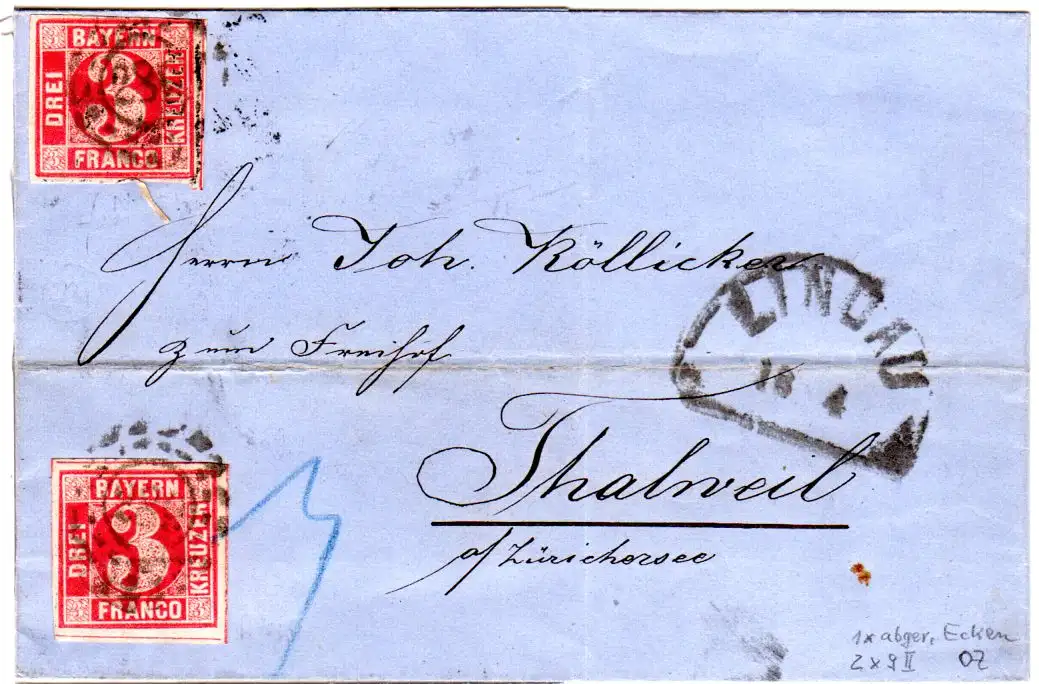 BAYERN
DREI
3
KREUZER
FRANCO
Herrn Joh. Köllicker
zum Freihof
LINDAU
18 4
Thalweil
a/Zürichersee
BAYERN
DREI
3
KREUZER
FRANCO
1x abger. Ecken
2 x 9 II OZ